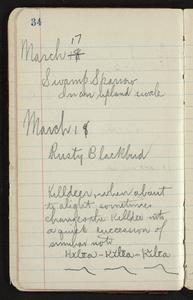 34
March 17
Swamp Sparrow
In an upland swale
March 18
Rusty Blackbird
Killdeer, when about
to alight sometimes
change its Killdee into
a quick succession of
similar note
Kiltea - Kiltea - Kiltea